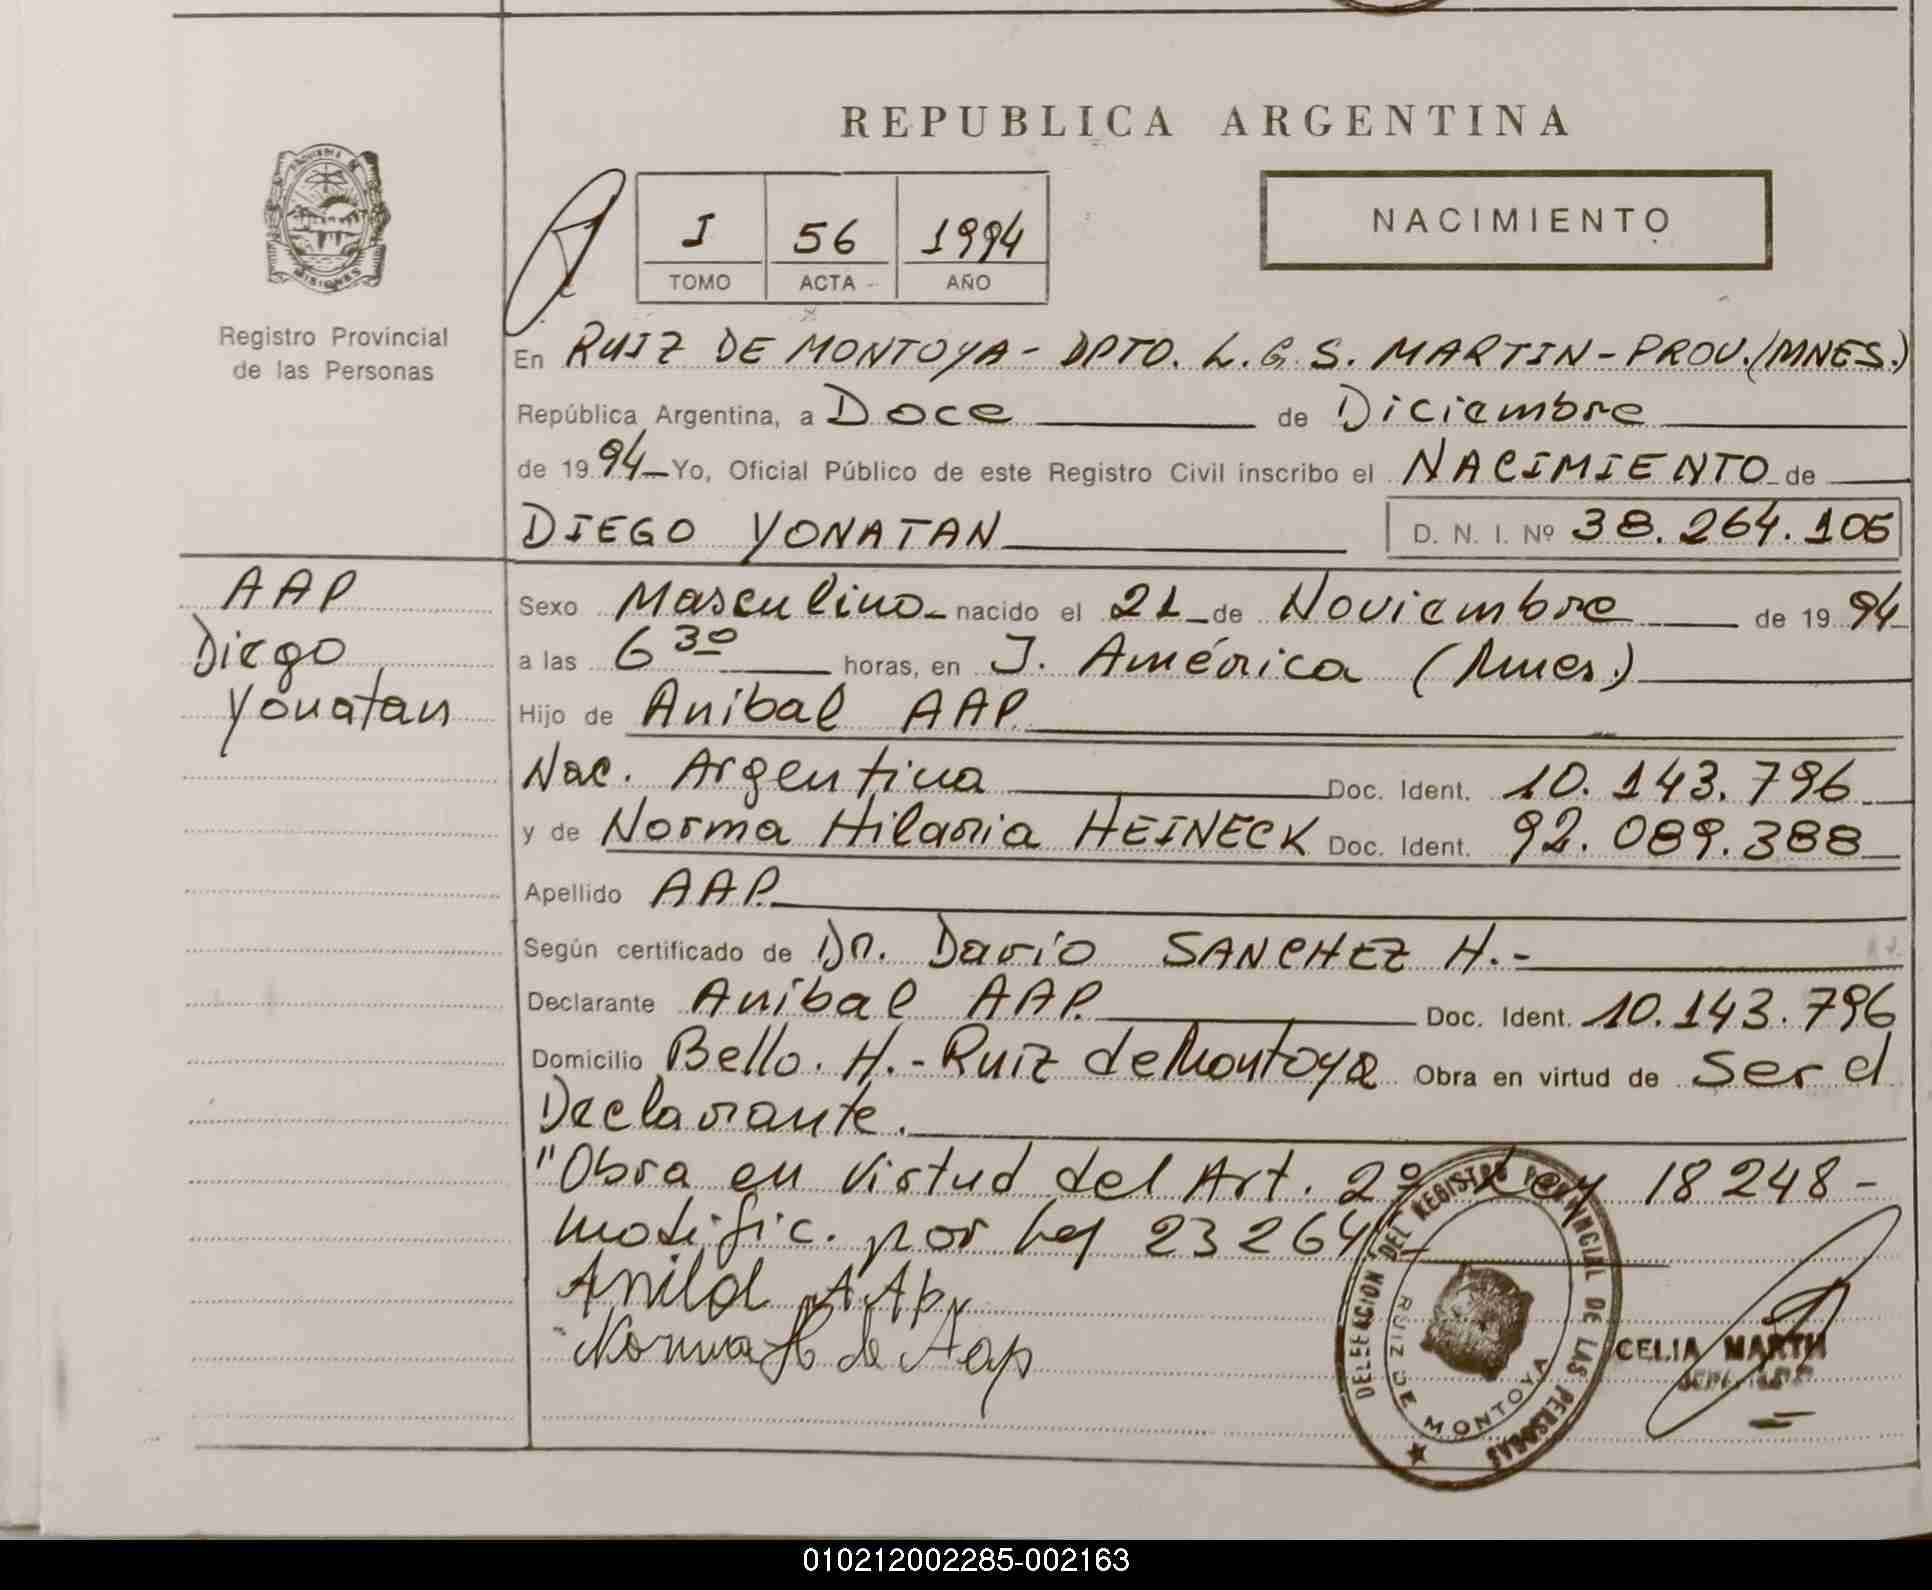 REPUBLICA ARGENTINA
PROVINCIA DE MISIONES
Registro Provincial
de las Personas
I 56 1994
TOMO ACTA AÑO
NACIMIENTO
En RUIZ DE MONTOYA - DPTO. L.G.S. MARTIN - PROV. (MNES.)
República Argentina, a Doce de Diciembre
de 19 94 Yo, Oficial Público de este Registro Civil inscribo el NACIMIENTO de
DIEGO YONATAN D. N. I. Nº 38.264.105
AAP
Diego
Yonatan
Sexo Masculino nacido el 21 de Noviembre de 19 94
a las 6 30 horas, en J. América (Mnes.)
Hijo de Anibal AAP
Nac. Argentina Doc. Ident. 10.143.796
y de Norma Hilaria HEINECK Doc. Ident. 92.089.388
Apellido AAP.
Según certificado de Dr. Dario SANCHEZ H.-
Declarante Anibal AAP. Doc. Ident. 10.143.796
Domicilio Bello. H.- Ruiz de Montoya Obra en virtud de ser el
Declarante.
"Obra en virtud del Art. 2º Ley 18248-
modific. por Ley 23264
Anibal AAp
Norma H de Aap
DELEGACION DEL REGISTRO PROVINCIAL DE LAS PERSONAS
RUIZ DE MONTOYA
CELIA MARTH
010212002285-002163